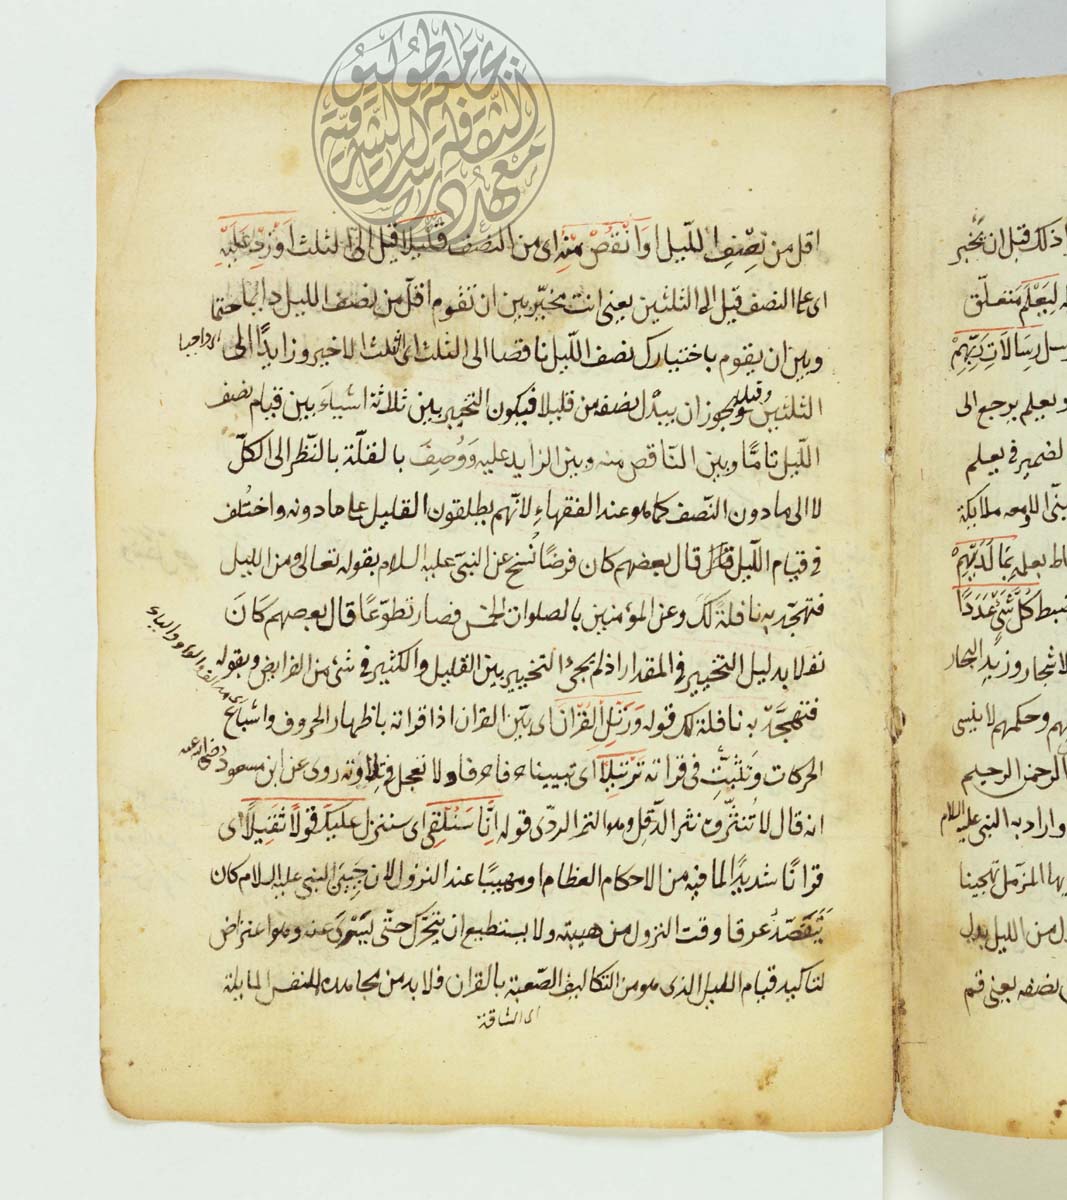 اقل من نصف الليل او انقص منه اى من النصف قليلا قيل الى الثلث او زد عليه
اى على النصف قيل الى الثلثين يعنى انت مخيّر بين ان تقوم اقل من نصف الليل دايما حتما
وبين ان يقوم باختيارك نصف اللّيل ناقصا الى الثلث اى الثلث الاخير وزايدًا الى
الثلثين وقيل يجوز ان يبدل نصفه من قليلا فيكون التخيير بين ثلاثة اشياء بين قيام نصف
اللّيل تامّا وبين النّاقص منه وبين الزايد عليه ووُصِفَ بالقلّة بالنّظر الى الكلّ
لا الى ما دون النّصف كما هو عند الفقهاء لانّهم يطلقون القليل على ما دونه واختُلف
فى قيام اللّيل قال بعضهم كان فرضًا نُسخ عن النبىّ عليه السلام بقوله تعالى ومن الليل
فتهجّد به نافلة لكَ وعن المؤمنين بالصلوات الخمس فصار تطوّعًا قال بعضهم كَانَ
نفلا بدليل التخيير فى المقدار اذ لم يجئ التخيير بين القليل والكثير فى شئ من الفرايض وبقوله
فتهجّد به نافلة لك قوله وَرَتِّلِ القُرْآنَ اى بيّن القران اذا قراته باظهار الحروف واشباع
الحركات وتثبّت فى قراته تَرْتيلًا اى تبيينا حرفا حرفا ولا تعجل فى تلاوته روى عن ابن مسعود رضى الله عنه
انه قال لا تنثروه نثر الدّقل وهو التمر الردى قوله اِنَّا سَنُلْقِى اى سننزل عليكَ قولًا ثَقيلًا اى
قرانًا شديدًا لما فيه من الاحكام العظام او مهيبًا عند النزول لان جَبِينَ النبى عليه السلام كان
يَتَفَصّدُ عرقا وقت النزول من هيبته ولا يستطيع ان يتحرّك حتّى يُسَرّى عنه وهو اعتراض
لتاكيد قيام الليل الذى هو من التكاليف الصّعبة بالقران فلا بد من مجاهدة النفس المايلة
اى الشاقة
ذلك قبل ان يخبر
لِيَعْلَمَ متعلّق
رِسَالَاتِ رَبِّهِمْ
ويعلم يرجع الى
الضمير فى يعلم
معه ملايكة
يعلمه بِمَا لَدَيْهِمْ
كُلَّ شَئٍ عَدَدًا
الاشجار وزبد البحار
وحكمهم لا ينسى
الرحمن الرحيم
واراد به النبى عليه السلام
المزمل تهجينا
من الليل بدل
نصفه يعنى قم